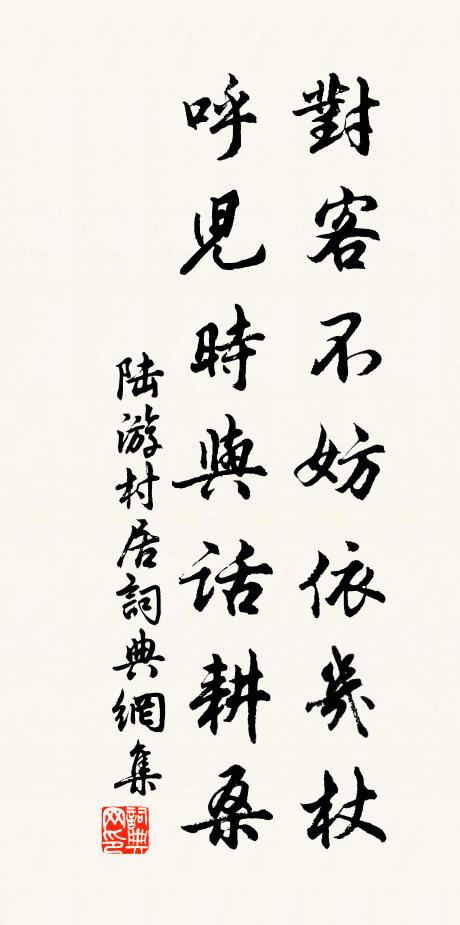 對客不妨依幾杖
呼兒時與話耕桑
陆游村居詞典網集
詞典网印